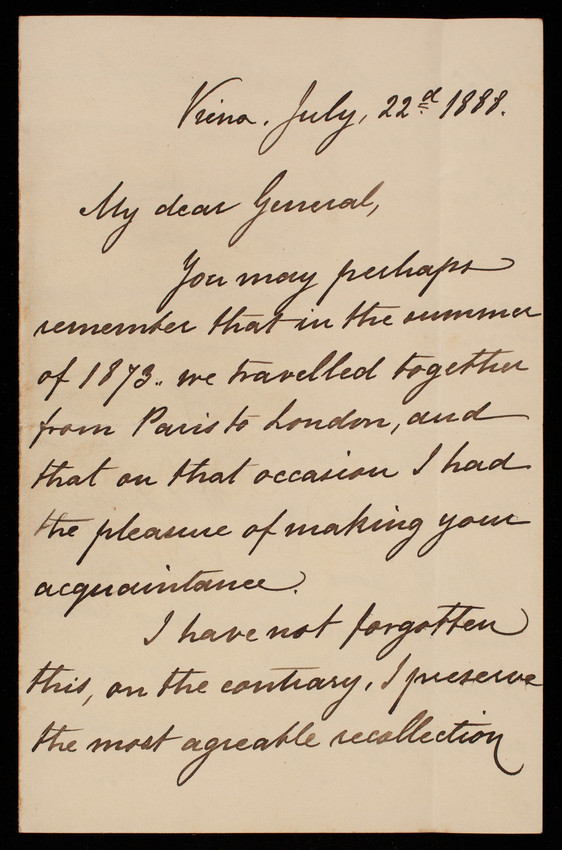 Viena. July, 22d 1888.
My dear General,
You may perhaps
remember that in the summer
of 1873.. we travelled together
from Paris to London, and
that on that occasion I had
the pleasure of making your
acquaintance.
I have not forgotten
this, on the contrary, I preserve
the most agreable recollection